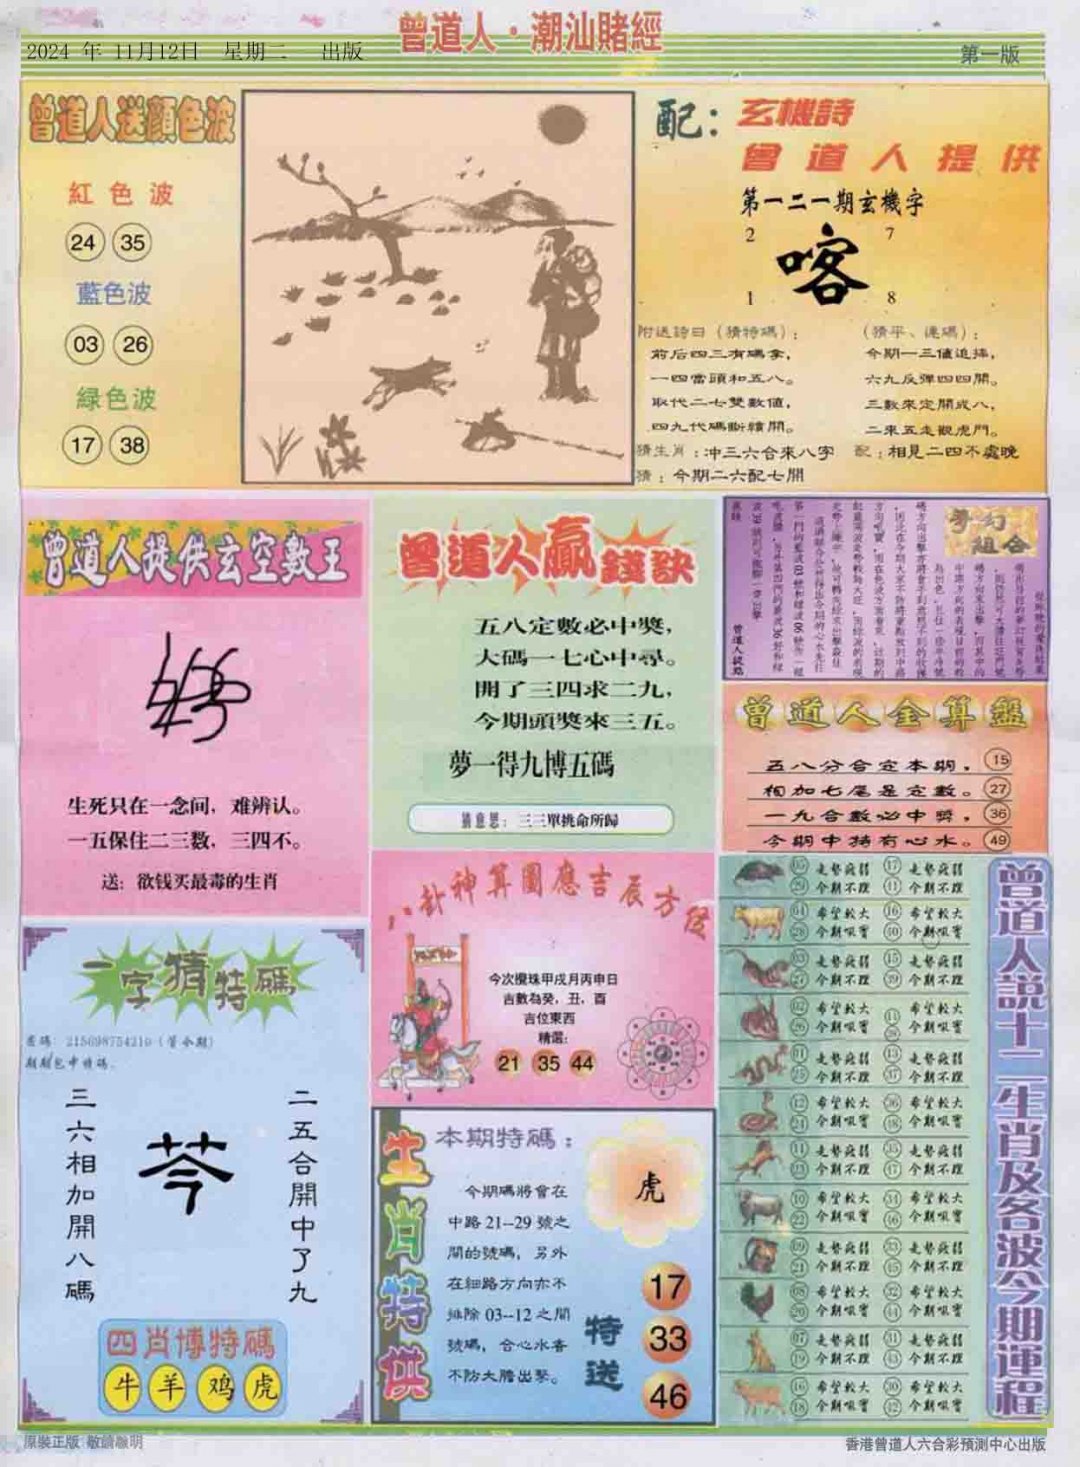 曾道人·潮汕賭經
2024 年 11月12日 星期二 出版
第一版
曾道人送顏色波
紅色波
24 35
藍色波
03 26
緑色波
17 38
配:玄機詩
曾道人提供
第一二一期玄機字
2 7
喀
1 8
附送詩曰(猜特碼):
前后四三有碼拿,
一四當頭和五八。
取代二七雙數值,
四九代碼斷續開。
(猜平、連碼):
今期一三值追捧,
六九反彈四四開。
三數來定開成八,
二來五走觀虎門。
猜生肖:冲三六合來八字
配:相見二四不處晚
猜:今期二六配七開
曾道人提供玄空數王
生死只在一念间,难辨认。
一五保住二三数,三四不。
送:欲钱买最毒的生肖
曾道人贏錢訣
五八定數必中獎,
大碼一七心中尋。
開了三四求二九,
今期頭獎來三五。
夢一得九博五碼
猜意思:三三單挑命所歸
夢幻組合
曾道人金算盤
五八分合定本期, 15
相加七尾是定數。 27
一九合數必中獎, 36
今期中特有心水。 49
一字猜特碼
期期包中特碼.
三六相加開八碼
芩
二五合開中了九
四肖博特碼
牛 羊 鸡 虎
八卦神算圖應吉辰方位
今次攪珠甲戌月丙申日
吉數為癸,丑,酉
吉位東西
精選:
21 35 44
生肖特供
本期特碼:
今期碼將會在
中路21--29號之
間的號碼,另外
在細路方向亦不
排除03--12之間
號碼,合心水者
不防大膽出擊。
虎
特送
17
33
46
曾道人説十二生肖及各波今期運程
05 走勢疲弱 17 走勢疲弱
29 今期不理 41 今期不理
04 希望較大 16 希望較大
28 今期吼實 40 今期吼實
03 走勢疲弱 15 走勢疲弱
27 今期不理 39 今期不理
02 希望較大 希望較大
26 今期吼實 今期吼實
01 走勢疲弱 13 走勢疲弱
25 今期不理 37 今期不理
12 希望較大 36 希望較大
24 今期吼實 48 今期吼實
11 走勢疲弱 35 走勢疲弱
23 今期不理 47 今期不理
10 希望較大 34 希望較大
22 今期吼實 46 今期吼實
09 走勢疲弱 33 走勢疲弱
21 今期不理 45 今期不理
08 希望較大 32 希望較大
20 今期吼實 44 今期吼實
07 走勢疲弱 31 走勢疲弱
19 今期不理 43 今期不理
希望較大 30 希望較大
18 今期吼實 今期吼實
原裝正版 敬請聲明
香港曾道人六合彩預測中心出版